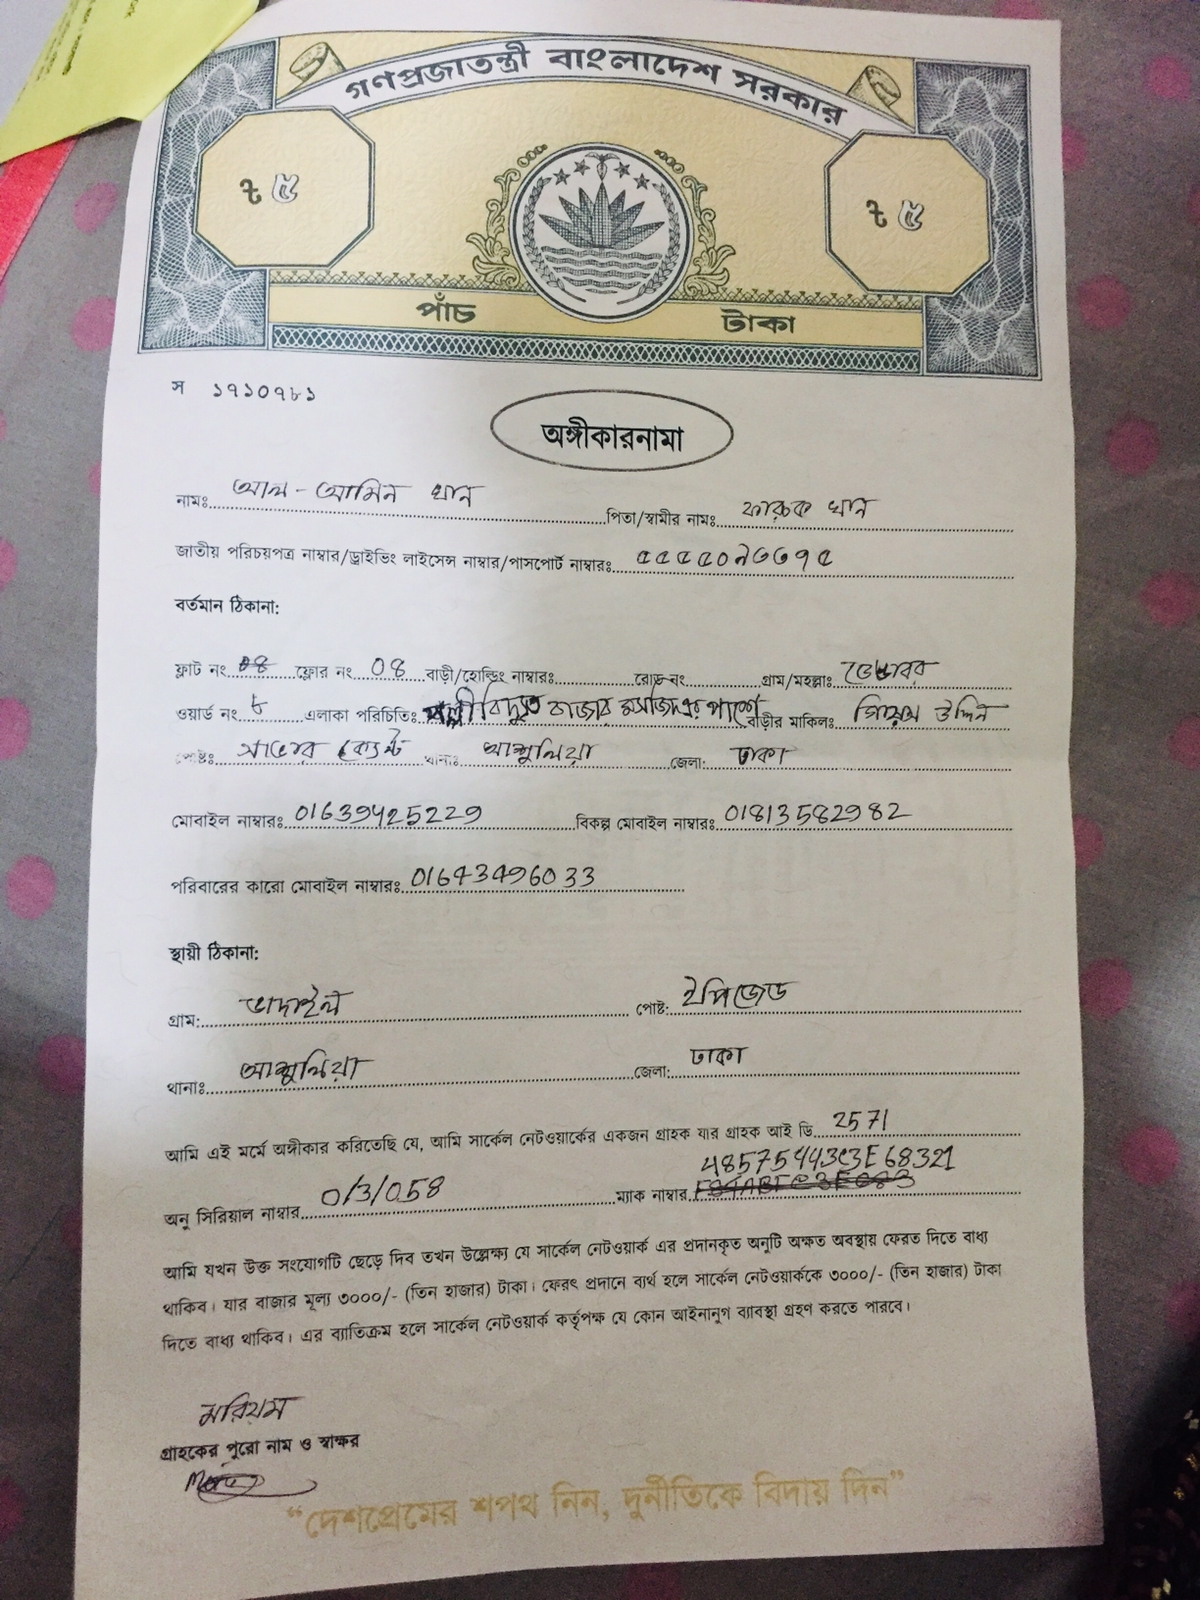 গণপ্রজাতন্ত্রী বাংলাদেশ সরকার
৳ ৫ ৳ ৫
পাঁচ টাকা
স ১৭১০৭৮১
অঙ্গীকারনামা
নামঃ আল-আমিন খান পিতা/স্বামীর নামঃ ফারুক খান
জাতীয় পরিচয়পত্র নাম্বার/ড্রাইভিং লাইসেন্স নাম্বার/পাসপোর্ট নাম্বারঃ ৫৫৫৫০৯৩৩৭৫
বর্তমান ঠিকানা:
ফ্লাট নং ফ্লোর নং 08 বাড়ী/হোল্ডিং নাম্বারঃ রোড নং গ্রাম/মহল্লাঃ
ওয়ার্ড নং ৮ এলাকা পরিচিতিঃ পল্লী বিদ্যুত বাজার মসজিদ এর পাশে বাড়ীর মালিকঃ উদ্দিন
পোষ্টঃ সাভার ক্যান্ট থানাঃ আশুলিয়া জেলা: ঢাকা
মোবাইল নাম্বারঃ 01639425229 বিকল্প মোবাইল নাম্বারঃ 01813582982
পরিবারের কারো মোবাইল নাম্বারঃ 01643496033
স্থায়ী ঠিকানা:
গ্রাম: ভাদাইল পোষ্ট: ইপিজেড
থানাঃ আশুলিয়া জেলা: ঢাকা
আমি এই মর্মে অঙ্গীকার করিতেছি যে, আমি সার্কেল নেটওয়ার্কের একজন গ্রাহক যার গ্রাহক আই ডি 2571
অনু সিরিয়াল নাম্বার 0/3/058 ম্যাক নাম্বার 48575443C3E68321
আমি যখন উক্ত সংযোগটি ছেড়ে দিব তখন উল্লেক্ষ্য যে সার্কেল নেটওয়ার্ক এর প্রদানকৃত অনুটি অক্ষত অবস্থায় ফেরত দিতে বাধ্য
থাকিব। যার বাজার মূল্য ৩০০০/- (তিন হাজার) টাকা। ফেরৎ প্রদানে ব্যর্থ হলে সার্কেল নেটওয়ার্ককে ৩০০০/- (তিন হাজার) টাকা
দিতে বাধ্য থাকিব। এর ব্যাতিক্রম হলে সার্কেল নেটওয়ার্ক কর্তৃপক্ষ যে কোন আইনানুগ ব্যাবস্থা গ্রহণ করতে পারবে।
মরিয়ম
গ্রাহকের পুরো নাম ও স্বাক্ষর
“দেশপ্রেমের শপথ নিন, দুর্নীতিকে বিদায় দিন”